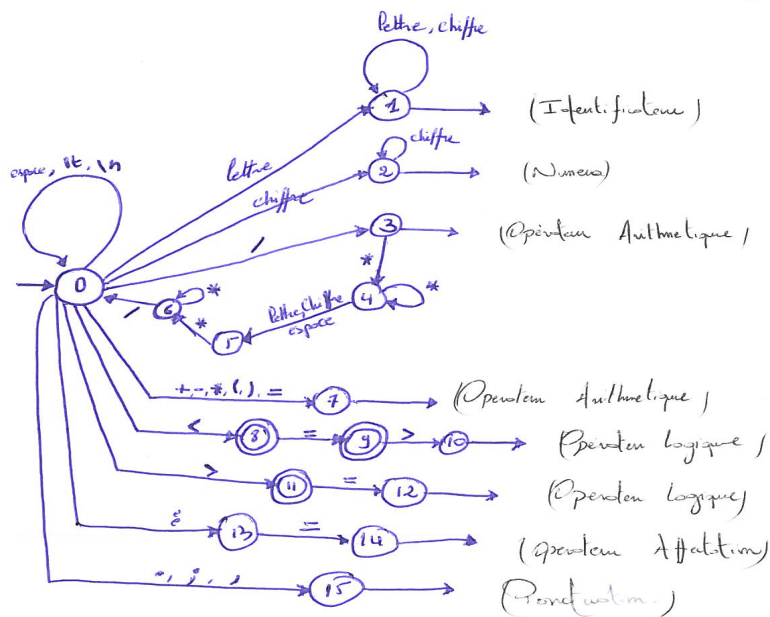 lettre, chiffre
1 (Identificateur)
chiffre
espace, \t, \n
lettre
2 (Numero)
chiffre
/
3 (Opérateur Arithmetique)
*
0
6 *
4 *
/
*
lettre, chiffre
espace
5
+, -, *, (, ), =
7 (Operateur Arithmetique)
< 8 = 9 > 10 (Operateur Logique)
> 11 = 12 (Operateur Logique)
: 13 = 14 (operateur Affectation)
., ;, ,
15 (Ponctuation)